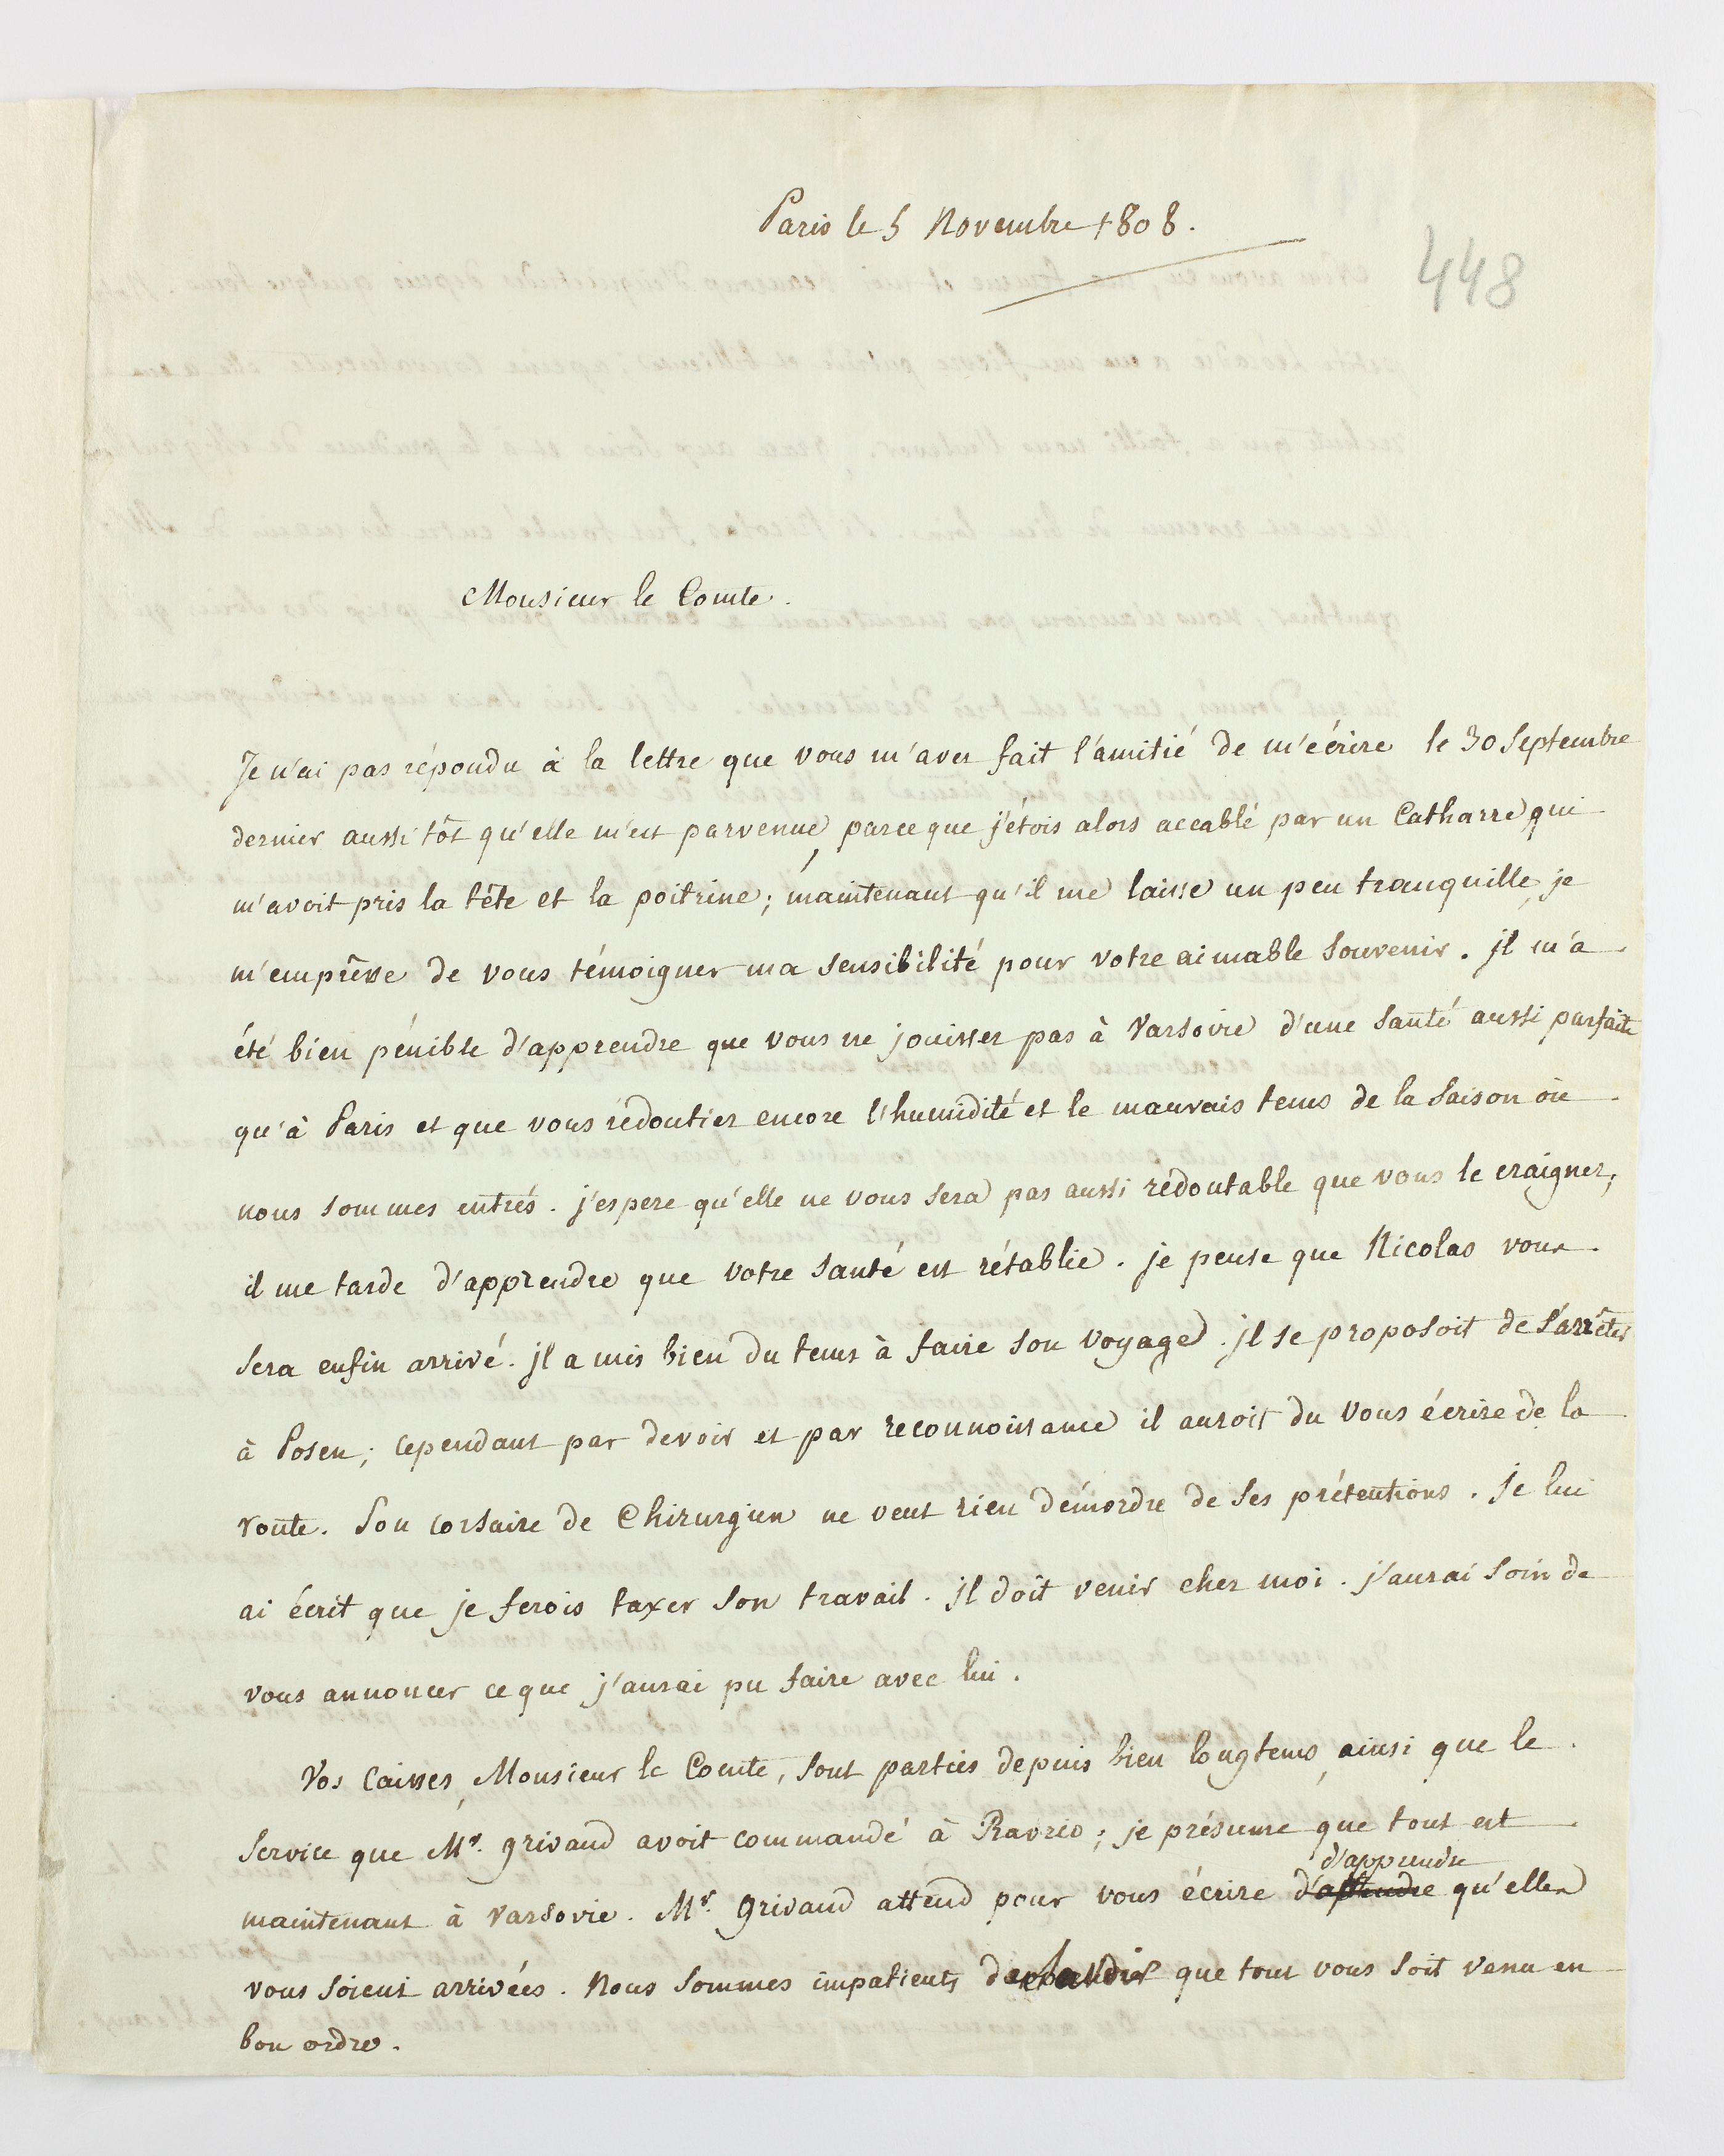 Paris le 5 Novembre 1808.
448
Monsieur le Comte.
Je n'ai pas répondu à la lettre que vous m'avez fait l'amitié de m'écrire le 30 Septembre
dernier aussitôt qu'elle m'est parvenue, parceque j'étois alors accablé par un Catharre qui
m'avoit pris la tête et la poitrine; maintenant qu'il me laisse un peu tranquille, je
m'empresse de vous témoigner ma sensibilité pour votre aimable souvenir. jl m'a
été bien pénible d'apprendre que vous ne jouissez pas à Varsovie d'une santé aussi parfaite
qu'à Paris et que vous redoutiez encore l'humidité et le mauvais tems de la saison où
nous sommes entrés. j'espere qu'elle ne vous sera pas aussi redoutable que vous le craignez,
il me tarde d'apprendre que votre santé est rétablie. je pense que Nicolas vous
sera enfin arrivé. jl a mis bien du tems à faire son voyage. jl se proposoit de s'arrêter
à Posen; cependant par devoir et par reconnoissance il auroit du vous écrire de la
route. Son corsaire de Chirurgien ne veut rien démordre de ses prétentions. Je lui
ai écrit que je ferois taxer son travail. jl doit venir chez moi. j'aurai soin de
vous annoncer ce que j'aurai pu faire avec lui.
Vos caisses, Monsieur le Comte, sont parties depuis bien longtems, ainsi que le
service que Mr. grivaud avoit commandé à Ravrio; je présume que tout est
maintenant à Varsovie. Mr. Grivaud attend pour vous écrire d'apprendre qu'elles
vous soient arrivées. Nous sommes impatients que tout vous soit venu en
bon ordre.